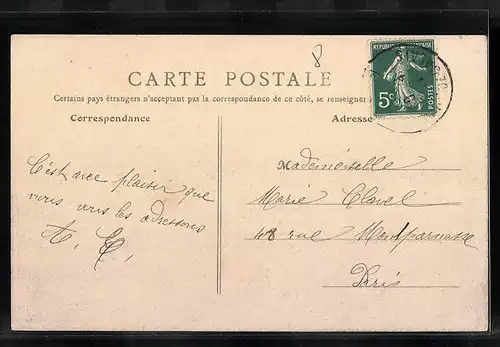 8
CARTE POSTALE
Certains pays étrangers n'acceptant pas la correspondance de ce côté, se renseigner
Correspondance
Adresse
RÉPUBLIQUE FRANÇAISE
5c
POSTES
C'est avec plaisir que
nous vous les adressons
Mademoiselle
Marie Clavel
48 rue Montparnasse
Paris